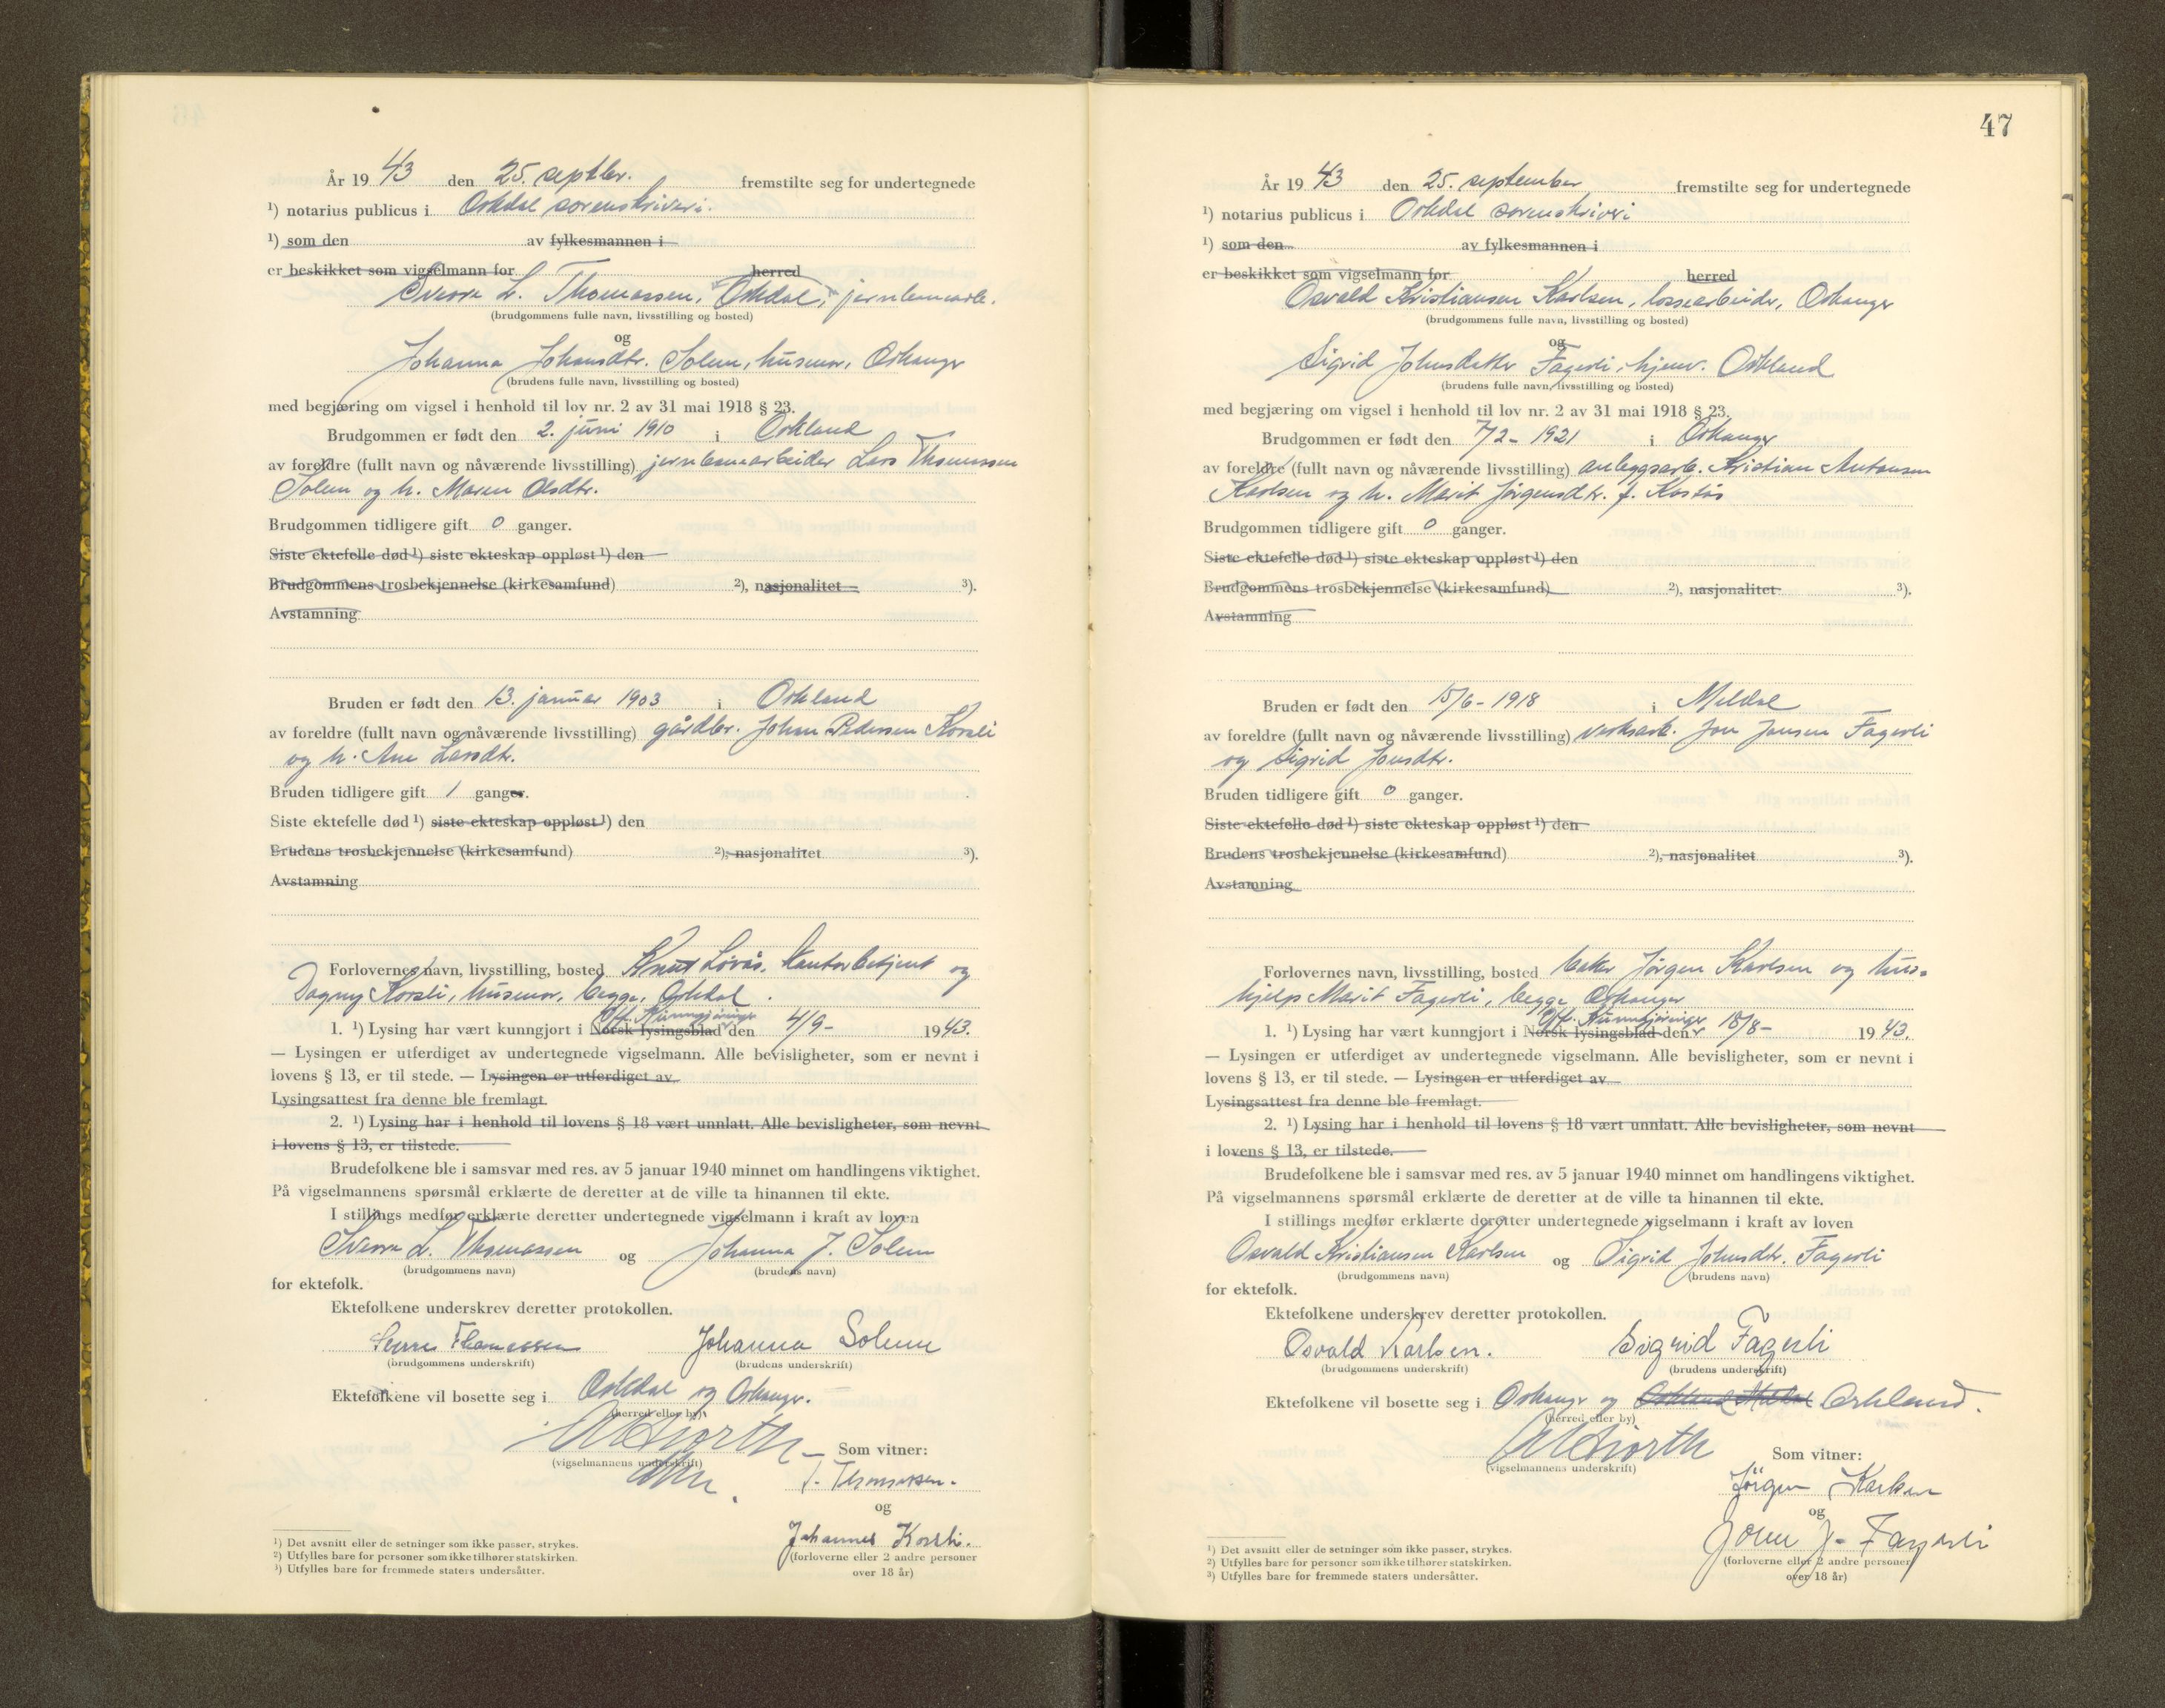 År 19 43 den 25. septbr. fremstilte seg for undertegnede
¹) notarius publicus i Orkdal sorenskriveri.
¹) som den av fylkesmannen i
er beskikket som vigselmann for herred
Sverre L. Thomassen, Orkdal, jernbanearb.
(brudgommens fulle navn, livsstilling og bosted)
og
Johanna Johansdtr. Solem, husmor, Orkanger
(brudens fulle navn, livsstilling og bosted)
med begjæring om vigsel i henhold til lov nr. 2 av 31 mai 1918 § 23.
Brudgommen er født den 2. juni 1910 i Orkland
av foreldre (fullt navn og nåværende livsstilling) jernbanearbeider Lars Thomassen
Solem og h. Maren Olsdtr.
Brudgommen tidligere gift 0 ganger.
Siste ektefelle død ¹) siste ekteskap oppløst ¹) den
Brudgommens trosbekjennelse (kirkesamfund) ²), nasjonalitet ³).
Avstamning
Bruden er født den 13. januar 1903 i Orkland
av foreldre (fullt navn og nåværende livsstilling) gårdbr. Johan Pedersen Korsli
og h. Ane Larsdtr.
Bruden tidligere gift 1 ganger.
Siste ektefelle død ¹) siste ekteskap oppløst ¹) den
Brudens trosbekjennelse (kirkesamfund) ²), nasjonalitet ³).
Avstamning
Forlovernes navn, livsstilling, bosted Knut Lövås, kontorbetjent og
Dagny Korsli, husmor, begge, Orkdal.
Off. Kunngjøringer
1. ¹) Lysing har vært kunngjort i Norsk lysingsblad den 4/9- 1943.
— Lysingen er utferdiget av undertegnede vigselmann. Alle bevisligheter, som er nevnt i
lovens § 13, er til stede. — Lysingen er utferdiget av
Lysingsattest fra denne ble fremlagt.
2. ¹) Lysing har i henhold til lovens § 18 vært unnlatt. Alle bevisligheter, som nevnt
i lovens § 13, er tilstede.
Brudefolkene ble i samsvar med res. av 5 januar 1940 minnet om handlingens viktighet.
På vigselmannens spørsmål erklærte de deretter at de ville ta hinannen til ekte.
I stillings medfør erklærte deretter undertegnede vigselmann i kraft av loven
Sverre L. Thomassen og Johanna J. Solem
(brudgommens navn) (brudens navn)
for ektefolk.
Ektefolkene underskrev deretter protokollen.
Sverre Thomassen Johanna Solem
(brudgommens underskrift) (brudens underskrift)
Ektefolkene vil bosette seg i Orkdal og Orkanger.
(herred eller by)
(vigselmannens underskrift) Som vitner:
Thomassen.
og
Johannes Korsli.
(forloverne eller 2 andre personer
over 18 år)
¹) Det avsnitt eller de setninger som ikke passer, strykes.
²) Utfylles bare for personer som ikke tilhører statskirken.
³) Utfylles bare for fremmede staters undersåtter.
47
År 19 43 den 25. september fremstilte seg for undertegnede
¹) notarius publicus i Orkdal sorenskriveri
¹) som den av fylkesmannen i
er beskikket som vigselmann for herred
Osvald Kristiansen Karlsen, lossearbeider, Orkanger
(brudgommens fulle navn, livsstilling og bosted)
og
Sigrid Johnsdatter Fagerli, hjemv. Orkland
(brudens fulle navn, livsstilling og bosted)
med begjæring om vigsel i henhold til lov nr. 2 av 31 mai 1918 § 23.
Brudgommen er født den 7/2- 1921 i Orkanger
av foreldre (fullt navn og nåværende livsstilling) anleggsarb. Kristian Antonsen
Karlsen og h. Marit Jörgensdtr. f.
Brudgommen tidligere gift 0 ganger.
Siste ektefelle død ¹) siste ekteskap oppløst ¹) den
Brudgommens trosbekjennelse (kirkesamfund) ²), nasjonalitet ³).
Avstamning
Bruden er født den 15/6- 1918 i Meldal
av foreldre (fullt navn og nåværende livsstilling) verksarb. Jon Jonsen Fagerli
og Sigrid Jonsdtr.
Bruden tidligere gift 0 ganger.
Siste ektefelle død ¹) siste ekteskap oppløst ¹) den
Brudens trosbekjennelse (kirkesamfund) ²), nasjonalitet ³).
Avstamning
Forlovernes navn, livsstilling, bosted baker Jörgen Karlsen og hus-
hjelp Marit Fagerli, begge Orkanger
Off. Kunngjøringer
1. ¹) Lysing har vært kunngjort i Norsk lysingsblad den 18/8- 1943.
— Lysingen er utferdiget av undertegnede vigselmann. Alle bevisligheter, som er nevnt i
lovens § 13, er til stede. — Lysingen er utferdiget av
Lysingsattest fra denne ble fremlagt.
2. ¹) Lysing har i henhold til lovens § 18 vært unnlatt. Alle bevisligheter, som nevnt
i lovens § 13, er tilstede.
Brudefolkene ble i samsvar med res. av 5 januar 1940 minnet om handlingens viktighet.
På vigselmannens spørsmål erklærte de deretter at de ville ta hinannen til ekte.
I stillings medfør erklærte deretter undertegnede vigselmann i kraft av loven
Osvald Kristiansen Karlsen og Sigrid Johnsdtr. Fagerli
(brudgommens navn) (brudens navn)
for ektefolk.
Ektefolkene underskrev deretter protokollen.
Osvald Karlsen. Sigrid Fagerli
(brudgommens underskrift) (brudens underskrift)
Ektefolkene vil bosette seg i Orkanger og Orkland Meldal Orkland.
(herred eller by)
(vigselmannens underskrift) Som vitner:
Jörgen Karlsen
og
John J. Fagerli
(forloverne eller 2 andre personer
over 18 år)
¹) Det avsnitt eller de setninger som ikke passer, strykes.
²) Utfylles bare for personer som ikke tilhører statskirken.
³) Utfylles bare for fremmede staters undersåtter.